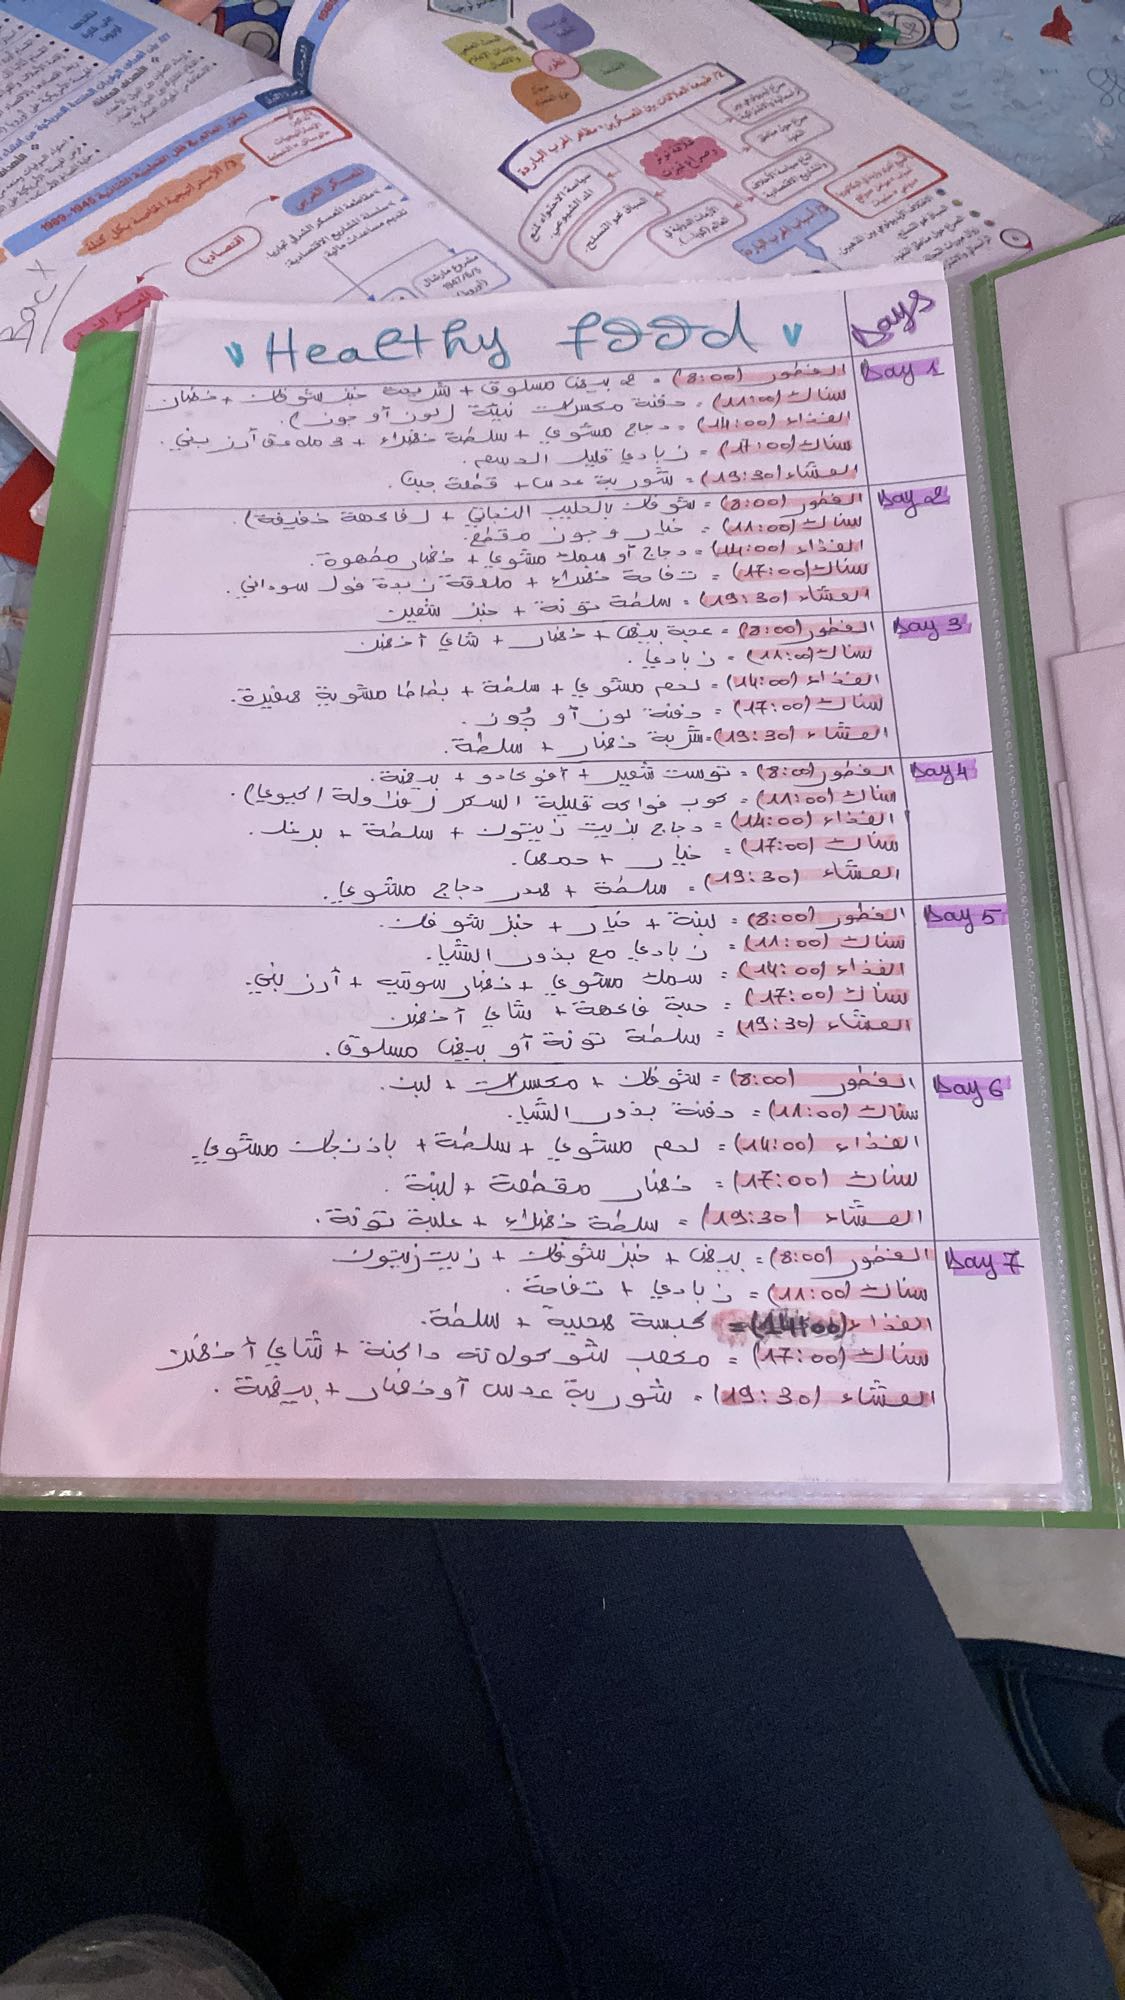 1989-1945
تطور العالم في ظل الثنائية القطبية 1945-1989
3/ الإستراتيجية الخاصة بكل كتلة
المعسكر الغربي
اقتصاديا
مشروع مارشال
1947/6/5
Bac
2/ طبيعة العلاقات بين المعسكرين - مظاهر الحرب الباردة
سياسة الاحتواء لمنع المد الشيوعي.
السباق نحو التسلح.
3/ أسباب الحرب الباردة
Healthy food
Days
Day 1
الفطور (8:00) = 2 بيض مسلوق + شريحة خبز شوفان + خضار
سناك (11:00) = حفنة مكسرات نيئة (لوز أو جوز).
الغذاء (14:00) = دجاج مشوي + سلطة خضراء + 3 ملاعق أرز بني.
سناك (17:00) = زبادي قليل الدسم.
العشاء (19:30) = شوربة عدس + قطعة جبن.
Day 2
الفطور (8:00) = شوفان بالحليب النباتي + (فاكهة خفيفة).
سناك (11:00) = خيار و جوز مقطع.
الغذاء (14:00) = دجاج أو سمك مشوي + خضار مطهوة.
سناك (17:00) = تفاحة خضراء + ملعقة زبدة فول سوداني.
العشاء (19:30) = سلطة تونة + خبز شعير
Day 3
الفطور (8:00) = عجة بيض + خضار + شاي أخضر
سناك (11:00) = زبادي.
الغذاء (14:00) = لحم مشوي + سلطة + بطاطا مشوية صغيرة.
سناك (17:00) = حفنة لوز أو جوز.
العشاء (19:30) = شربة خضار + سلطة.
Day 4
الفطور (8:00) = توست شعير + أفوكادو + بيضة.
سناك (11:00) = كوب فواكه قليلة السكر (فراولة / كيوي).
الغذاء (14:00) = دجاج بزيت زيتون + سلطة + برغل.
سناك (17:00) = خيار + حمص.
العشاء (19:30) = سلطة + صدر دجاج مشوي.
Day 5
الفطور (8:00) = لبنة + خيار + خبز شوفان.
سناك (11:00) = زبادي مع بذور الشيا.
الغذاء (14:00) = سمك مشوي + خضار سوتيه + أرز بني.
سناك (17:00) = حبة فاكهة + شاي أخضر
العشاء (19:30) = سلطة تونة أو بيض مسلوق.
Day 6
الفطور (8:00) = شوفان + مكسرات + لبن.
سناك (11:00) = حفنة بذور الشيا.
الغذاء (14:00) = لحم مشوي + سلطة + باذنجان مشوي.
سناك (17:00) = خضار مقطعة + لبنة.
العشاء (19:30) = سلطة خضراء + علبة تونة.
Day 7
الفطور (8:00) = بيض + خبز شوفان + زيت زيتون
سناك (11:00) = زبادي + تفاحة.
الغذاء (14:00) = كبسة صحية + سلطة.
سناك (17:00) = مكعب شوكولاتة داكنة + شاي أخضر
العشاء (19:30) = شوربة عدس أو خضار + بيضة.